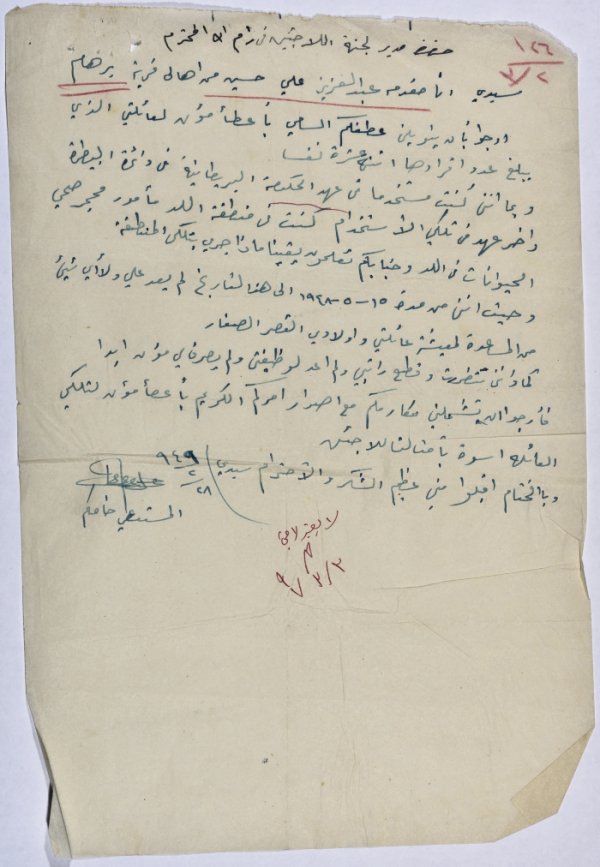 حضرة مدير لجنة اللاجئين في رام الله المحترم
١٢٦
٣/٢
سيدي انا مقدمه عبد العزيز علي حسين من اهالي قرية برهام
ارجوا بأن ينولين عطفكم السامي بأعطأ مؤن لعائلتي الذي
يبلغ عدد افرادها اثني عشرة نفسا
وبما انني كنت مستخدما في عهد الحكومة البريطانية في دائرة البيطرة
واخر عهد في تلكي الاستخدام كنت في منطقة اللد مأمور محجر صحي
الحيوانات في اللد وجنابكم تعلمون يقينا ماذا جرى بتلكي المنطقة
وحيث انني من مدة ١٥-٥-١٩٤٨ الى هذا التاريخ لم يعد علي ولا أي شيئ
من المساعدة لمعيشة عائلتي واولادي القصر الصغار
كما وانني تضررت وقطع راتبي ولم اعد لوظيفتي ولم يصرف لي مؤن ابدا
فأرجو ان تشملني مكارمكم مع اصدار امركم الكريم بأعطأ مؤن لتلكي
العائلة اسوة بأمثالنا للاجئين
وبالختام اقبلوا مني عظيم الشكر والاحترام سيدي
٢٨/٢/٩٤٩
المستدعي خادمكم
لا يعتبر لاجئ
٣/٣